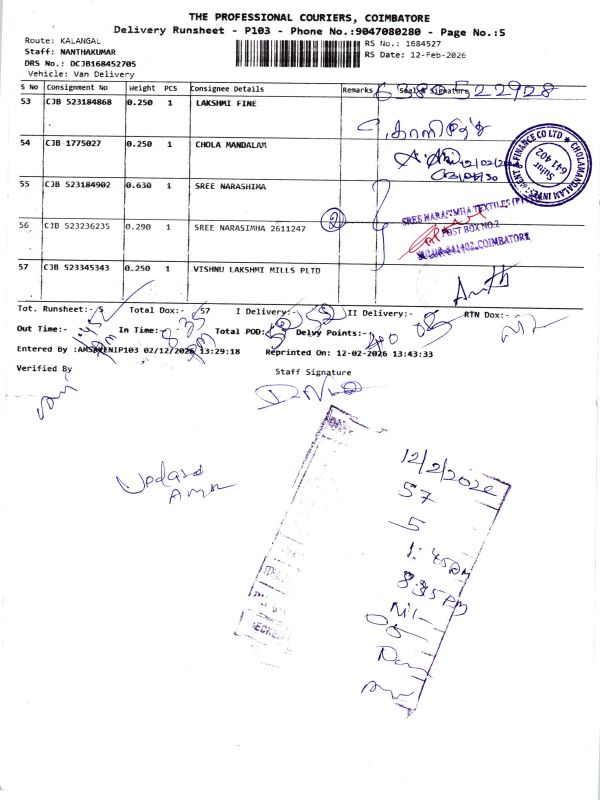 THE PROFESSIONAL COURIERS, COIMBATORE
Delivery Runsheet - P103 - Phone No.:9047080280 - Page No.:5
Route: KALANGAL
Staff: NANTHAKUMAR
DRS No.: DCJB168452705
Vehicle: Van Delivery
RS No.: 1684527
RS Date: 12-Feb-2026
S No Consignment No Weight PCS Consignee Details Remarks Seal & Signature
6380522928
53 CJB 523184868 0.250 1 LAKSHMI FINE
54 CJB 1775027 0.250 1 CHOLA MANDALAM
CHOLAMANDALAM INVESTMENT & FINANCE CO LTD
Sulur
641 402
55 CJB 523184902 0.630 1 SREE NARASHIMA
SREE NARASIMHA TEXTILES (P)
56 CJB 523236235 0.290 1 SREE NARASIMHA 2611247 2
POST BOX NO.2
SULUR-641402, COIMBATORE
57 CJB 523345343 0.250 1 VISHNU LAKSHMI MILLS PLTD
Tot. Runsheet:- 5 Total Dox:- 57 I Delivery:- 52 II Delivery:- 05 RTN Dox:-
Out Time:- 1:45 PM In Time:- 8:35 PM Total POD: Delvy Points:- 40
Entered By :AMSAVENIP103 02/12/2026 13:29:18 Reprinted On: 12-02-2026 13:43:33
Verified By Staff Signature
Updated
12/2/2026
57
5
1:45 PM
8:35 PM
Nil
05